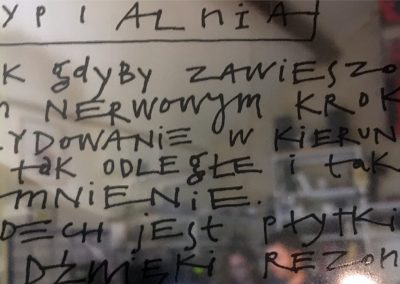 YPIALNIA
K gdyby ZAWIESZO
M NERWOWYM KROK
YDOWANIE W KIERUN
tak ODLEGŁE i tak
MNIENIE.
DECH jEST płytki
DŹWIĘKI REZON